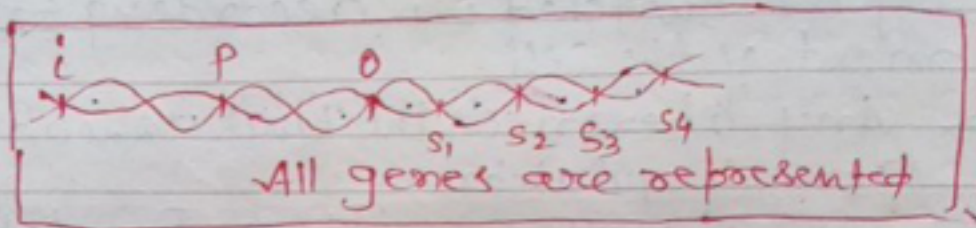 i P O
S1 S2 S3 S4
All genes are represented